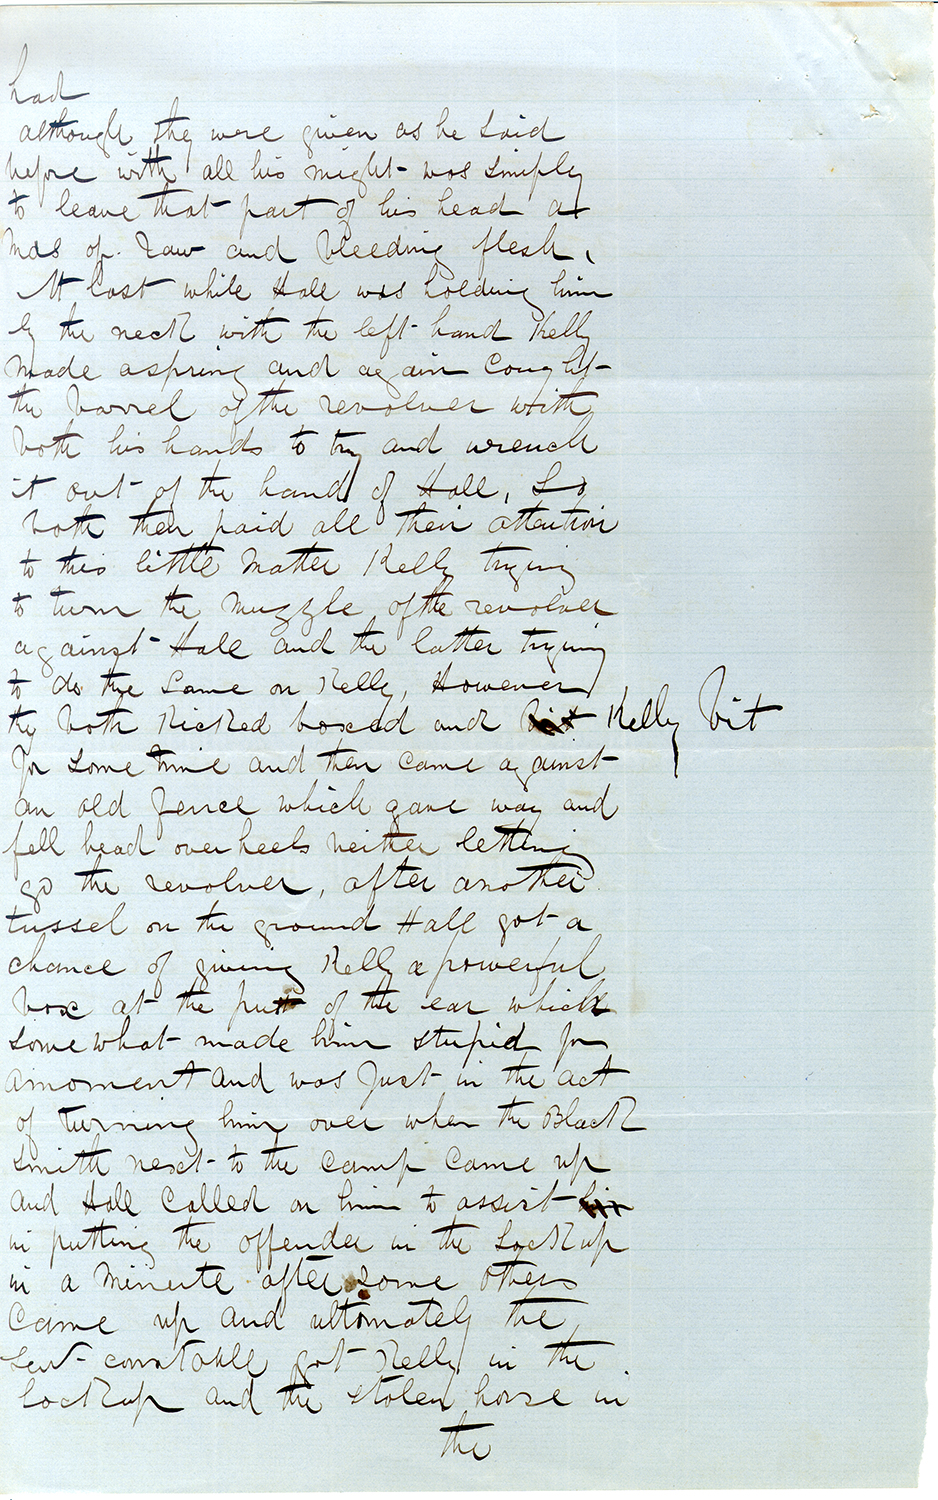 had
although they were given as he said
before with all his might was simply
to leave that part of his head a
mas of raw and bleeding flesh,
At last while Hall was holding him
by the neck with the left hand Kelly
made aspring and again Caught
the barrel of the revolver with
both his hands to try and wrench
it out of the hand of Hall, So
both then paid all their attention
to this little matter Kelly trying
to turn the muzzle of the revolver
against Hall and the latter trying
to do the same on Kelly, However
they both Kicked boxed and Kelly bit
for some time and then came against
an old fence which gave way and
fell head over heels neither letting
go the revolver, after another
tussel on the ground Hall got a
chance of giving Kelly a powerful
box at the put of the ear which
somewhat made him stupid for
amoment and was Just in the act
of turning him over when the Black
Smith next to the camp came up
and Hall called on him to assist
in putting the offender in the Lockup
in a minute after some others
came up and ultimately the
Senr constable got Kelly in the
lockup and the stolen horse in
the